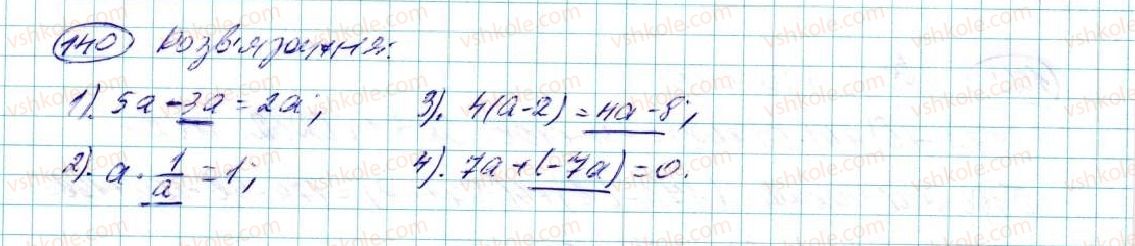 140 Розв'язання:
1). 5a - 3a = 2a; 3). 4(a-2) = 4a - 8;
2). a · 1/a = 1; 4). 7a + (-7a) = 0.